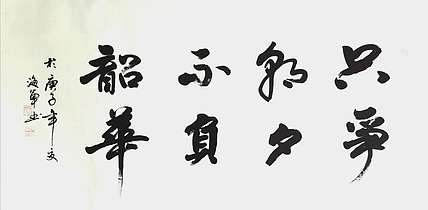 只争
朝夕
不负
韶華
於庚子年夏
海軍书